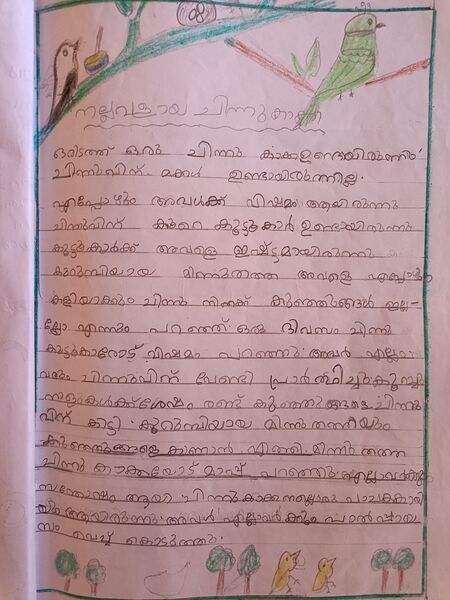 നല്ലവളായ ചിന്നുകാക്ക
ഒരിടത്ത് ഒരു ചിന്നു കാക്കഉണ്ടായിരുന്നു
ചിന്നുവിന് മക്കൾ ഉണ്ടായിരുന്നില്ല.
എപ്പോഴും അവൾക്ക് വിഷമം ആയിരുന്നു
ചിന്നുവിന് കുറെ കൂട്ടുകാർ ഉണ്ടായിരുന്നു
കൂട്ടുകാർക്ക് അവളെ ഇഷ്ട്ടമായിരുന്നു
കുറുമ്പിയായ മിന്നുതത്ത അവളെ എപ്പോഴും
കളിയാക്കും ചിന്നു നിനക്ക് കുഞ്ഞുങ്ങൾ ഇല്ല-
ല്ലോ എന്നും പറഞ്ഞ് ഒരു ദിവസം ചിന്നു
കൂട്ടുകാരോട് വിഷമം പറഞ്ഞു. അവർ എല്ലാ
വരും ചിന്നുവിന് വേണ്ടി പ്രാർത്ഥിച്ചു. കുറച്ചു
നാളുകൾക്ക്ശേഷം രണ്ട് കുഞ്ഞുങ്ങളെ ചിന്നു
വിന് കിട്ടി. കുറുമ്പിയായ മിന്നുതത്തയും
കുഞ്ഞുങ്ങളെ കാണാൻ എത്തി മിന്നു തത്ത
ചിന്നു കാക്കയോട് മാപ്പ് പറഞ്ഞു. എല്ലാവർക്കും
സന്തോഷം ആയി ചിന്നുകാക്ക നല്ലൊരു പാചകക്കാരി
യും ആയിരുന്നു. അവൾ എല്ലാവർക്കും പാൽപ്പായ
സം വെച്ച് കൊടുത്തു.